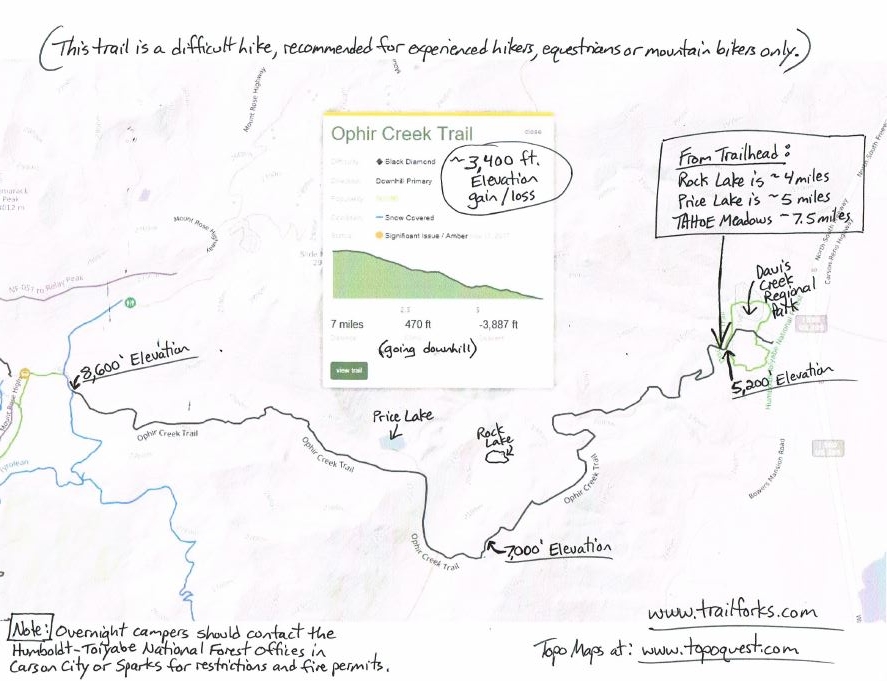 (This trail is a difficult hike, recommended for experienced hikers, equestrians or mountain bikers only.)
Mount Rose Highway
Ophir Creek Trail
close
Black Diamond
Downhill Primary
Snow Covered
Significant Issue / Amber
~3,400 ft.
Elevation
gain/loss
7 miles 470 ft -3,887 ft
(going downhill)
view trail
From Trailhead:
Rock Lake is ~4 miles
Price Lake is ~5 miles
TAHOE Meadows ~7.5 miles
North South Freeway
North South Highway
Carson-Reno Highway
Davis
Creek
Regional
Park
Mount Rose Highway
NF-051 to Relay Peak
8,600' Elevation
5,200' Elevation
Mount Rose High
Ophir Creek Trail
Price Lake
Rock
Lake
Ophir Creek Trail
Ophir Creek Trail
Ophir Creek Trail
Bowers Mansion Road
7,000' Elevation
Note: Overnight campers should contact the
Humboldt-Toiyabe National Forest Offices in
Carson City or Sparks for restrictions and fire permits.
www.trailforks.com
Topo Maps at: www.topoquest.com